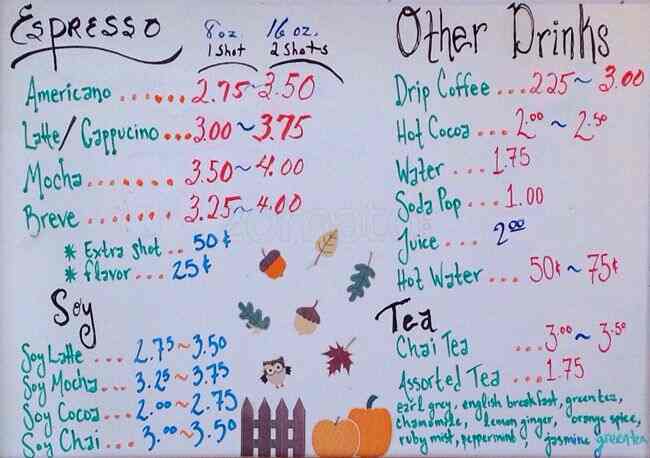 Espresso
8 oz. 16 oz.
1 shot 2 shots
Americano ...... 2.75~3.50
Latte/Cappucino ... 3.00~3.75
Mocha ....... 3.50~4.00
Breve ....... 3.25~4.00
* Extra shot .. 50¢
* flavor ... 25¢
Soy
Soy Latte .... 2.75~3.50
Soy Mocha.... 3.25~3.75
Soy Cocoa ... 2.00~2.75
Soy Chai ... 3.00~3.50
Other Drinks
Drip Coffee ... 2.25~ 3.00
Hot Cocoa ... 2.00 ~ 2.50
Water .... 1.75
Soda Pop ... 1.00
Juice .... 2.00
Hot Water .... 50¢~75¢
Tea
Chai Tea ... 3.00 ~ 3.50
Assorted Tea ... 1.75
earl grey, english breakfast, green tea,
chamomile, lemon ginger, orange spice,
ruby mist, peppermint, jasmine green tea